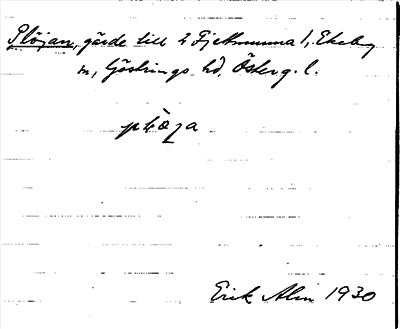 Plöjan, gärde till 2 Fjettmunna 1, Ekeby
sn, Göstrings hd, Österg. l.
plö̀ʒa
Erik Alin 1930